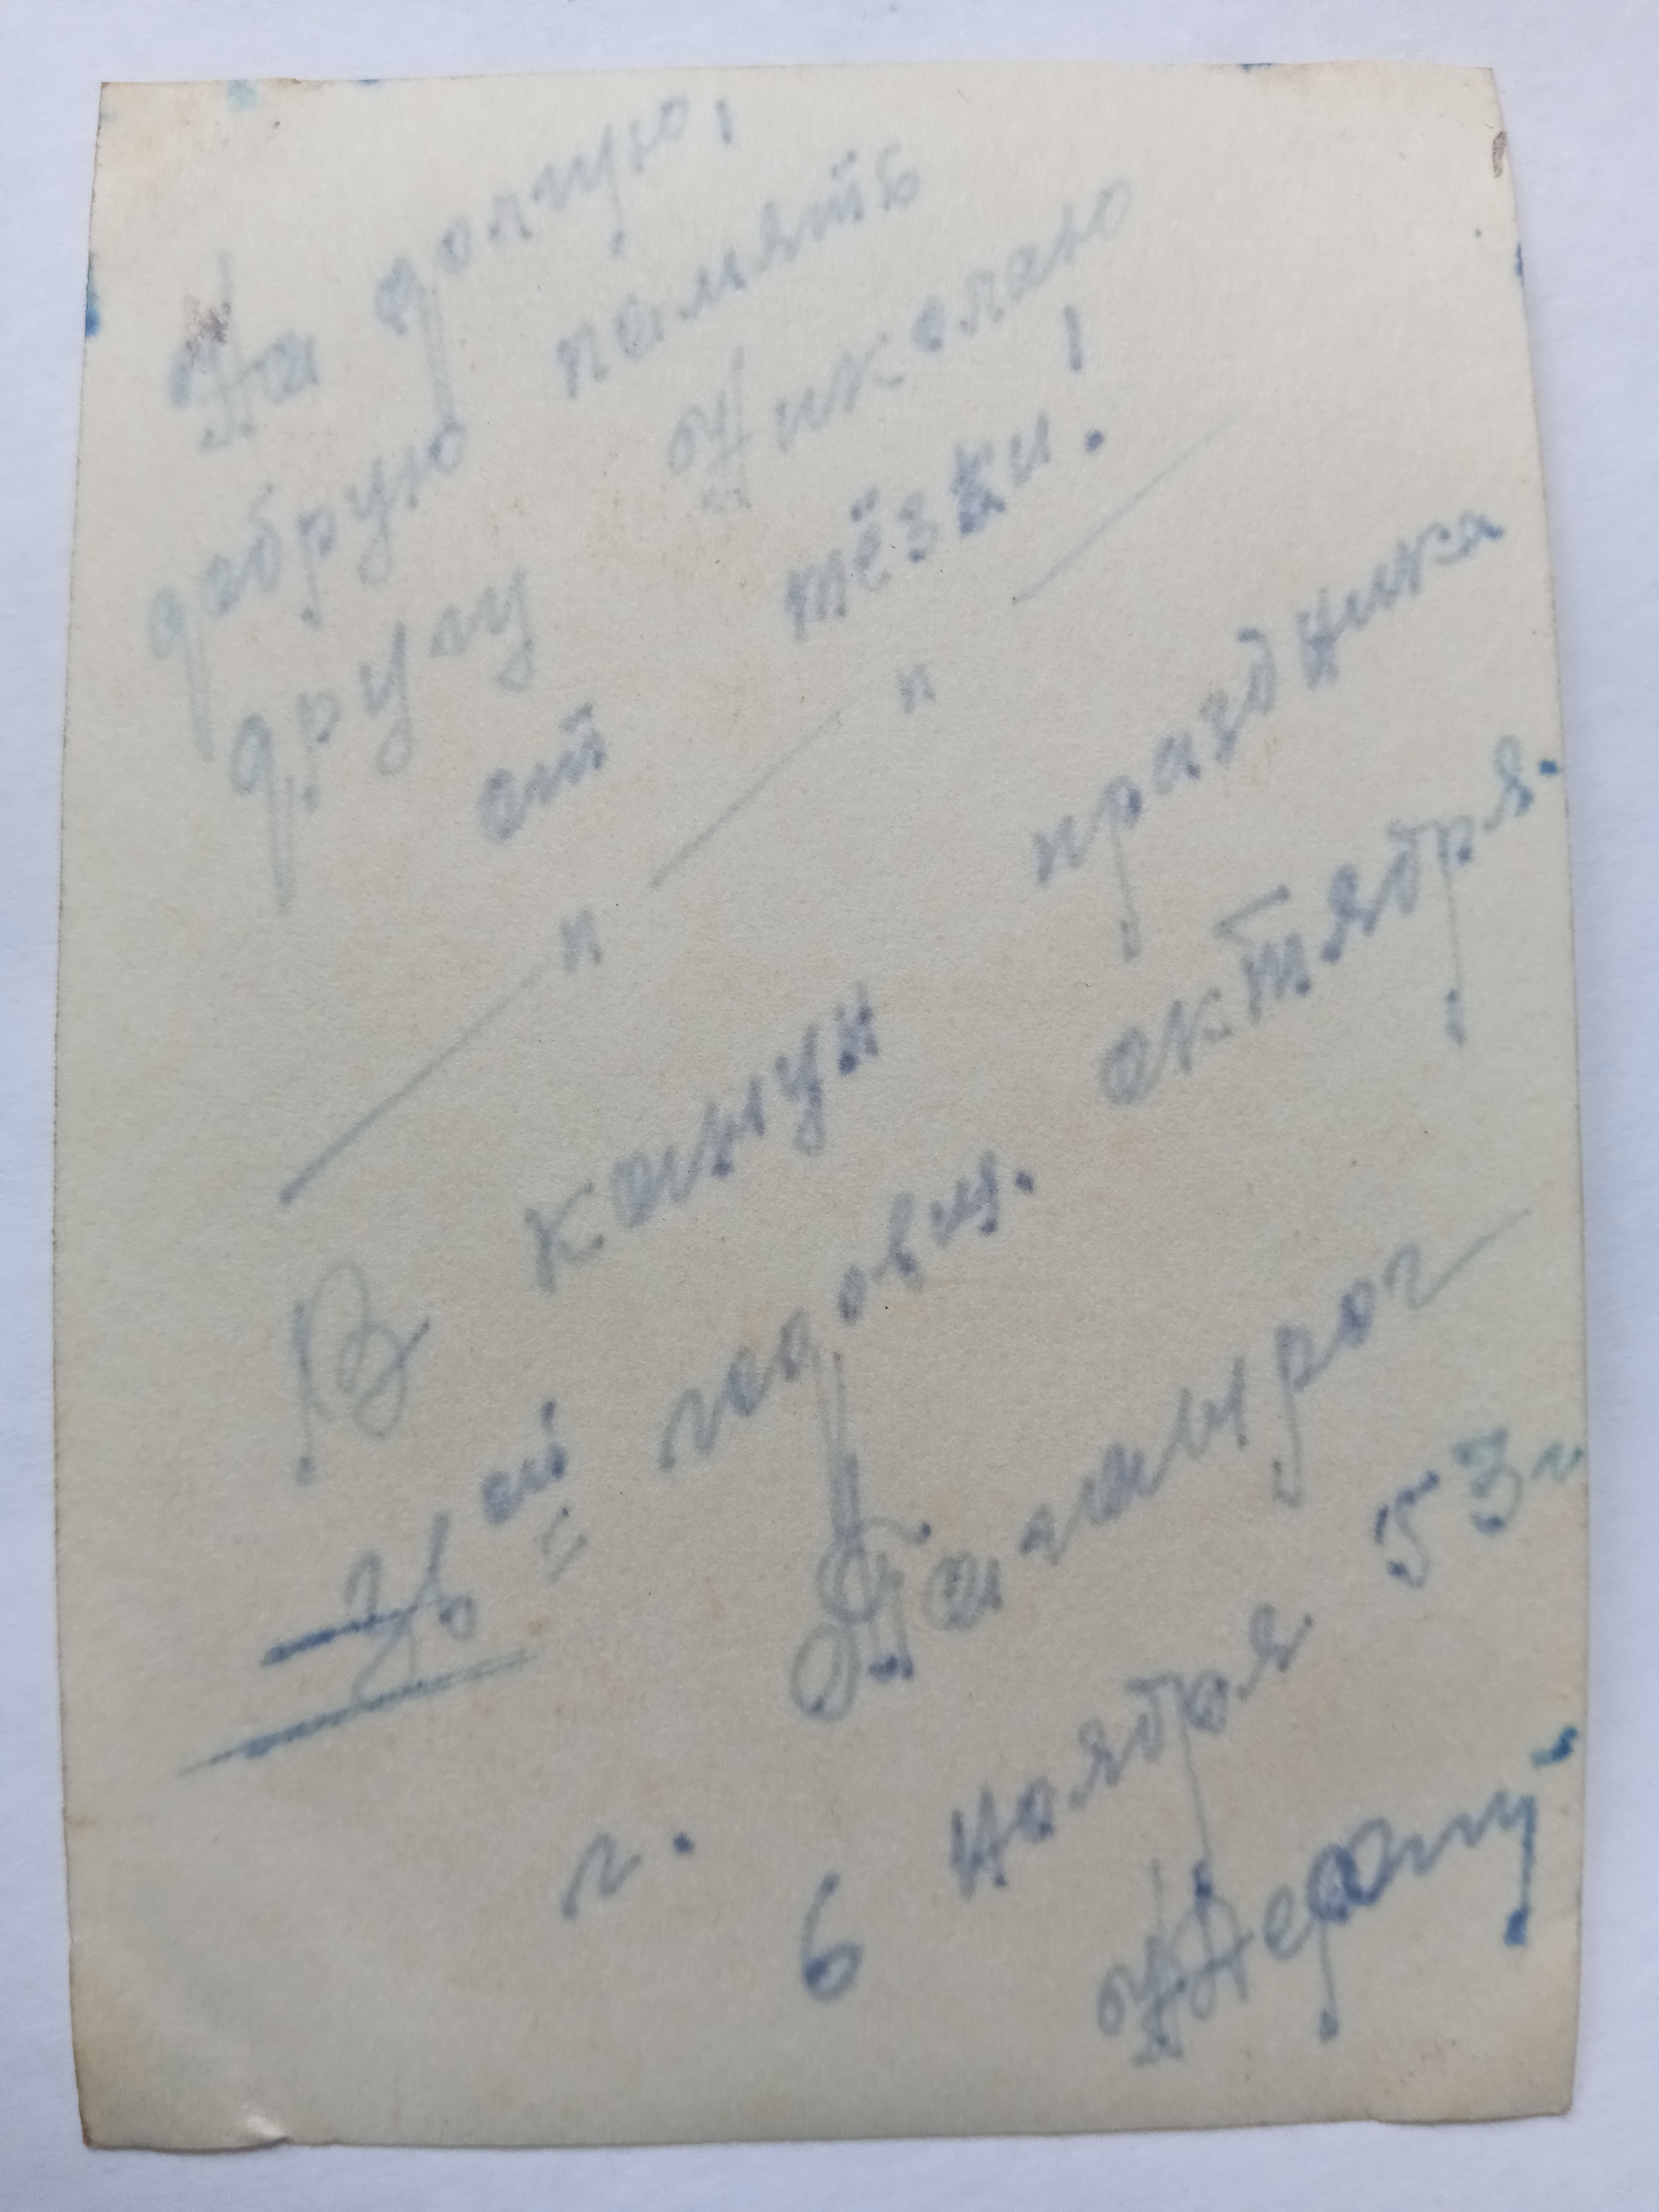 На долгую,
добрую память
другу Николаю
от тёзки!
— " — " —
В канун праздника
36 ой годовщ. октября.
г. Таганрог
6 ноября 53г